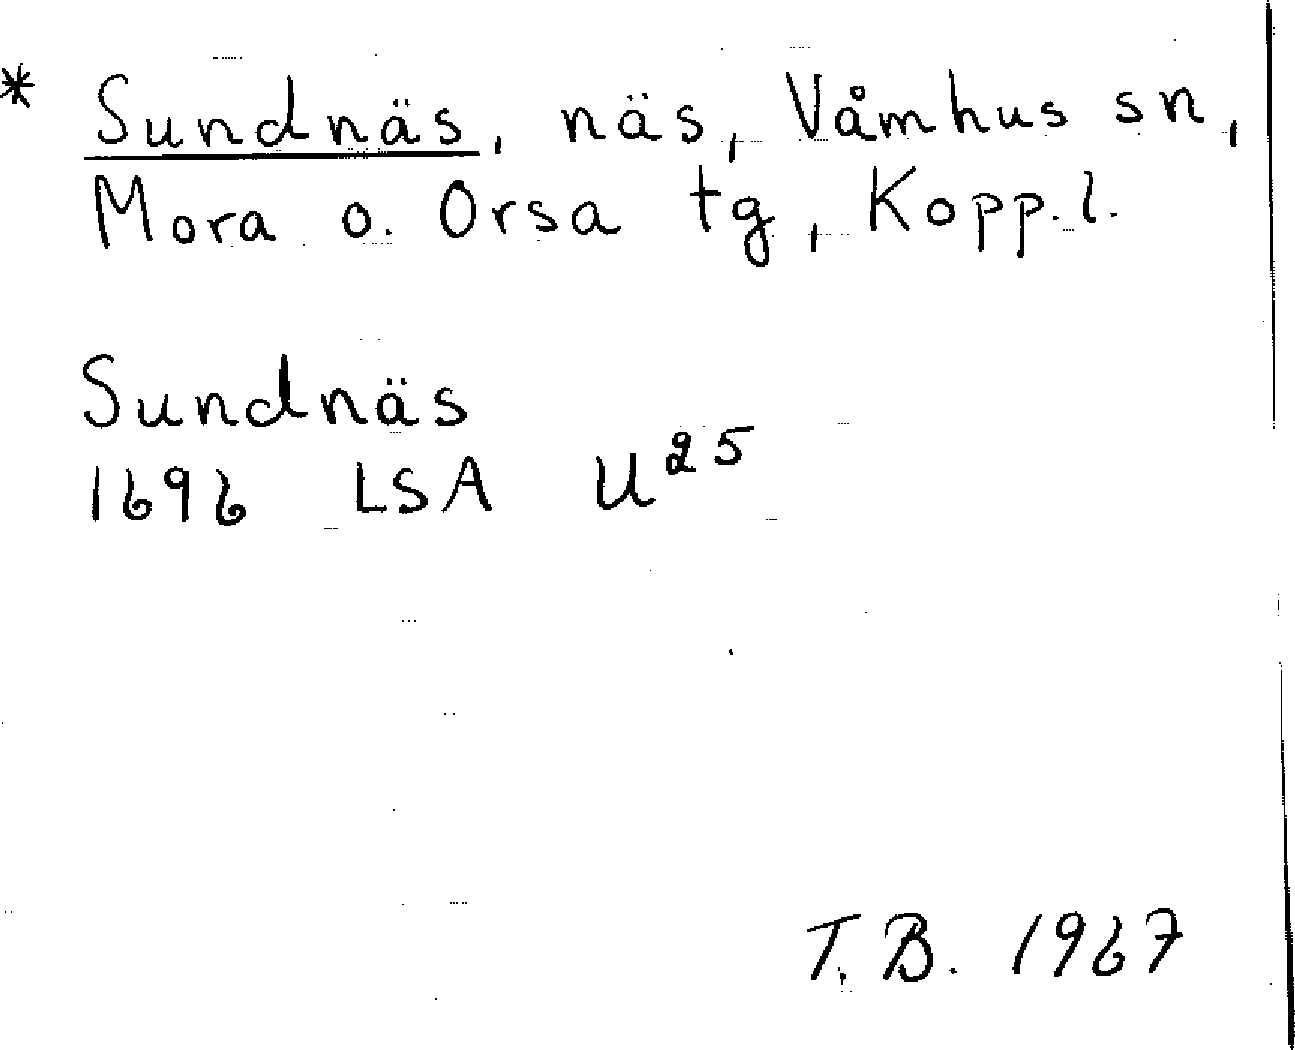 * Sundnäs, näs, Våmhus sn,
Mora o. Orsa tg, Kopp.l.
Sundnäs
1696 LSA U²⁵
T.B. 1967